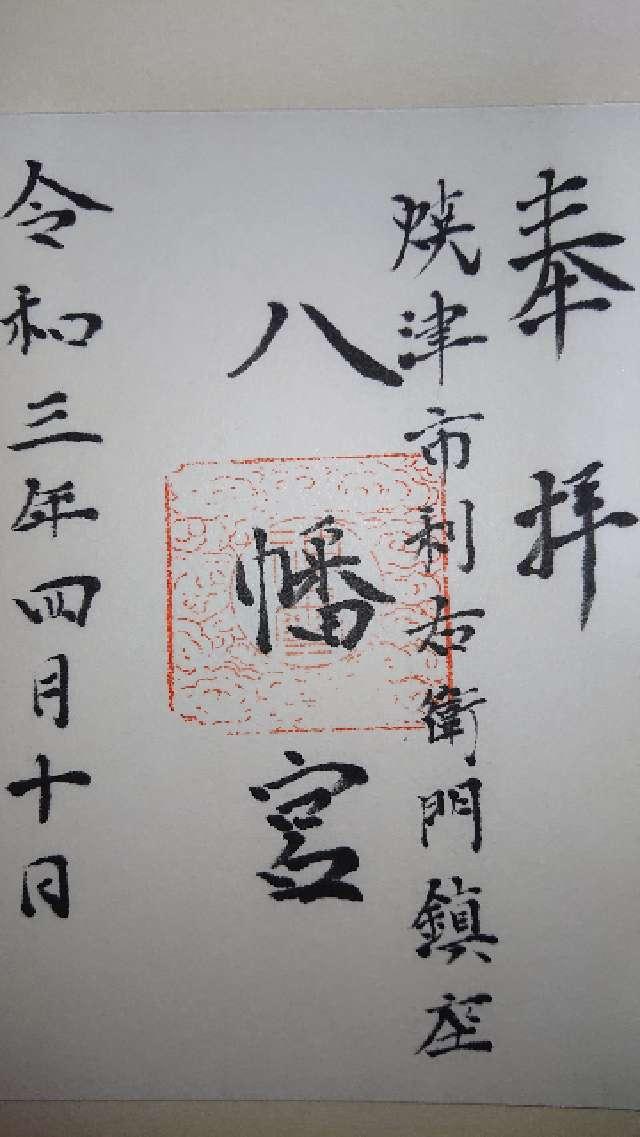 奉拝
焼津市利右衛門鎮座
八幡宮
令和三年四月十日